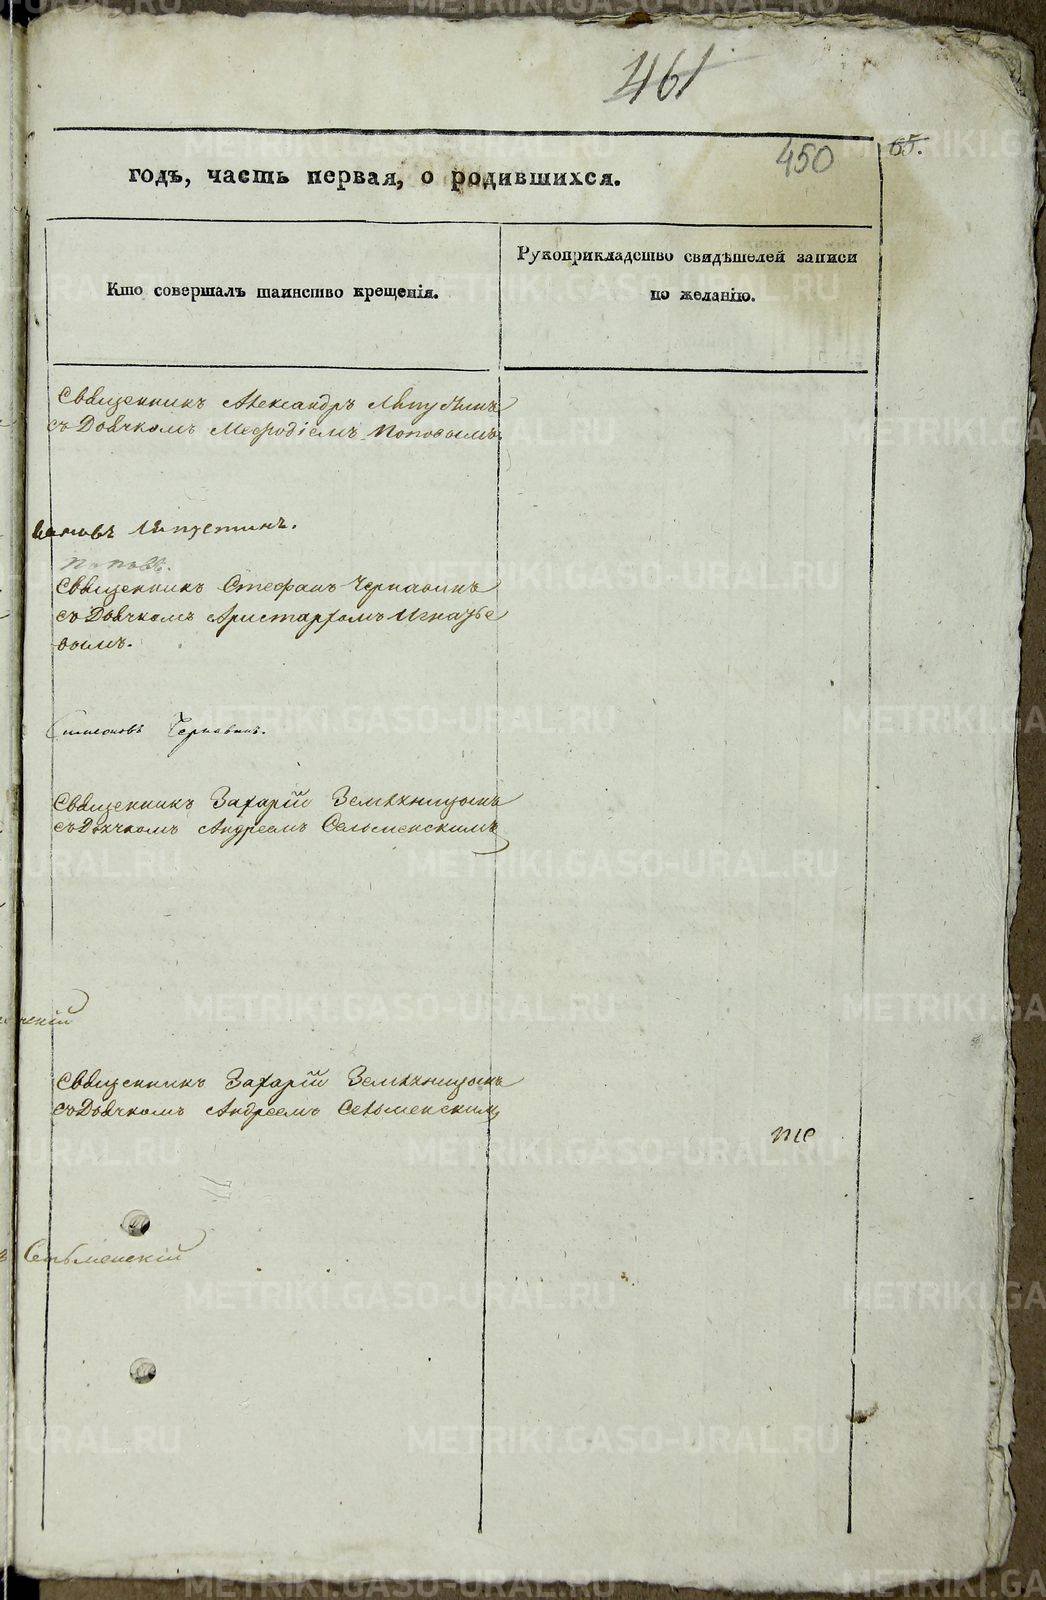 461
450
65.
годъ, часть первая, о родившихся.
Кто совершалъ таинство крещенія.
Рукоприкладство свидѣтелей записи
по желанію.
Священникъ Александръ Ляпустинъ
съ Дьячкомъ Меѳодіемъ Поповымъ
Ляпустинъ.
Поповъ.
Священникъ Стефанъ Чернавинъ
съ Дьячкомъ Аристархомъ Игнатье
вымъ.
Симеоновъ Чернавинъ.
Священникъ Захарій Земляницынъ
съ Дьячкомъ Андреемъ Сельменскимъ
Священникъ Захарій Земляницынъ
съ Дьячкомъ Андреемъ Сельменским
те
Сельменскій
METRIKI.GASO-URAL.RU